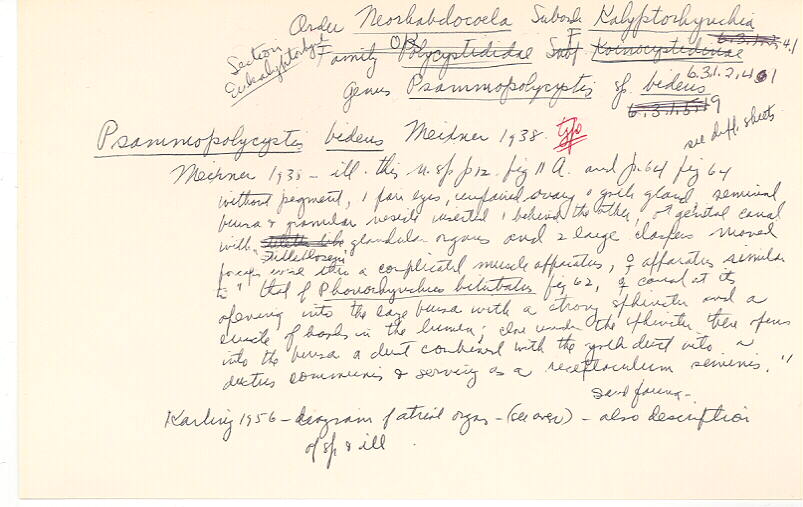 Order Neorhabdocoela Suborder Kalyptorhynchia
Section Eukalyptorhynchia
Family Polycystididae Subf Koinocystidinae 6.3.1.2.4.1
Genus Psammopolycystis sp. bidens 6.31.2.4.1
6.3.1.5.19
see diff. sheets
Psammopolycystis bidens Meixner 1938. typo
Meixner 1938 - ill. this n. sp p 12. fig 11 A. and p. 64 fig 64
without pigment, 1 pair eyes, unpaired ovary & yolk gland, seminal
bursa & granular vesicle inserted 1 behind the other, ♂ genital canal
with glandular organs and 2 large claspers moved
forceps wise thru a complicated muscle apparatus, ♀ apparatus similar
to "that of Phonorhynchus bitubatus fig 62, ♀ canal at its
opening into the large bursa with a strong sphincter and a
circle of bands in the lumen; close under the sphincter there opens
into the bursa a duct combined with the yolk duct into a
ductus communis & serving as a receptaculum seminis."
sand fauna -
Karling 1956 - diagram of atrial organs - (see over) - also description
of sp & ill